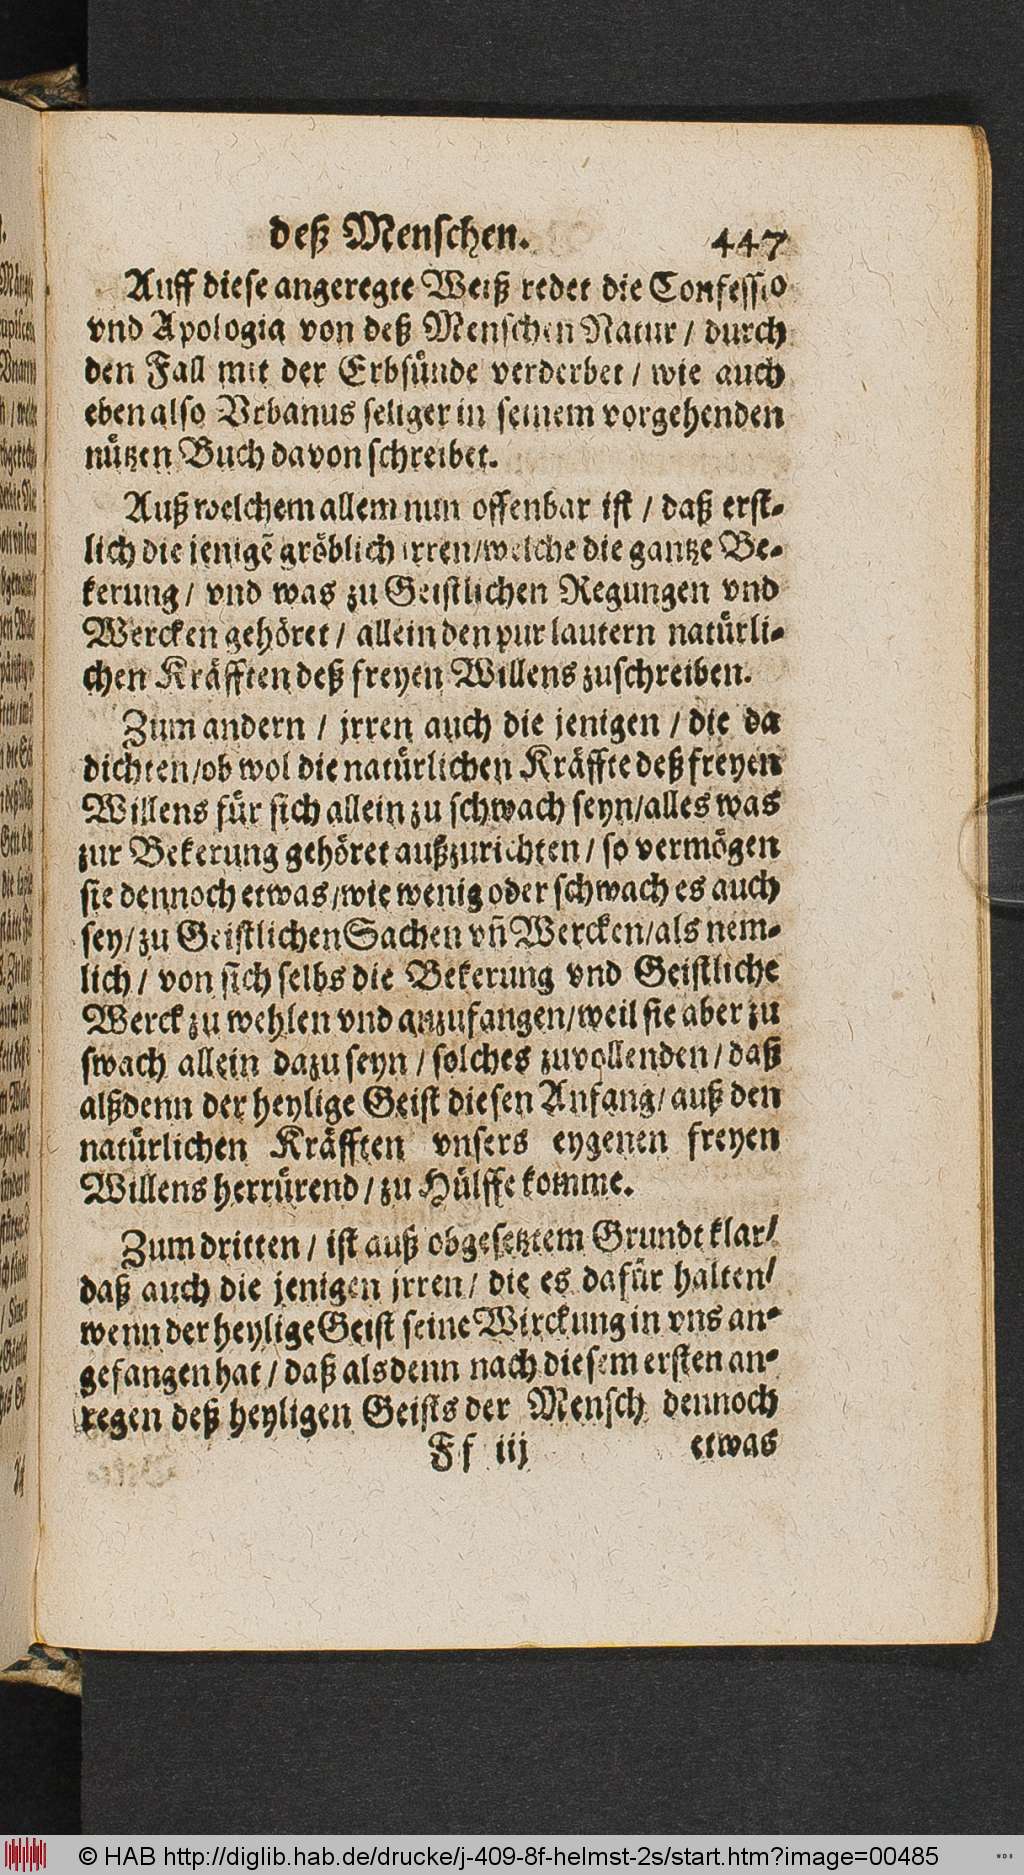 deß Menschen. 447
Auff diese angeregte Weiß redet die Confessio
vnd Apologia von deß Menschen Natur / durch
den Fall mit der Erbsünde verderbet / wie auch
eben also Vrbanus seliger in seinem vorgehenden
nützen Buch davon schreibet.
Auß welchem allem nun offenbar ist / daß erst-
lich die jenigẽ gröblich irren/welche die gantze Be-
kerung / vnd was zu Geistlichen Regungen vnd
Wercken gehöret / allein den pur lautern natürli-
chen Kräfften deß freyen Willens zuschreiben.
Zum andern / jrren auch die jenigen / die da
dichten/ob wol die natürlichen Kräffte deß freyen
Willens für sich allein zu schwach seyn/alles was
zur Bekerung gehöret außzurichten / so vermögen
sie dennoch etwas/wie wenig oder schwach es auch
sey/zu Geistlichen Sachen vñ Wercken/als nem-
lich / von sich selbs die Bekerung vnd Geistliche
Werck zu wehlen vnd anzufangen/weil sie aber zu
swach allein dazu seyn / solches zuvollenden / daß
alßdenn der heylige Geist diesen Anfang/ auß den
natürlichen Kräfften vnsers eygenen freyen
Willens herrürend / zu Hülffe komme.
Zum dritten / ist auß obgesetztem Grundt klar/
daß auch die jenigen jrren / die es dafür halten/
wenn der heylige Geist seine Wirckung in vns an-
gefangen hat / daß alsdenn nach diesem ersten an-
regen deß heyligen Geists der Mensch dennoch
Ff iij etwas
© HAB http://diglib.hab.de/drucke/j-409-8f-helmst-2s/start.htm?image=00485